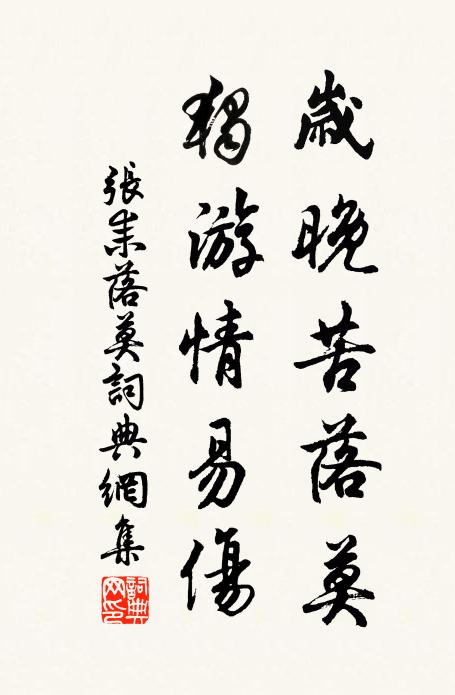 歲晚苦落莫
獨游情易傷
張耒落莫詞典網集
詞典
网印